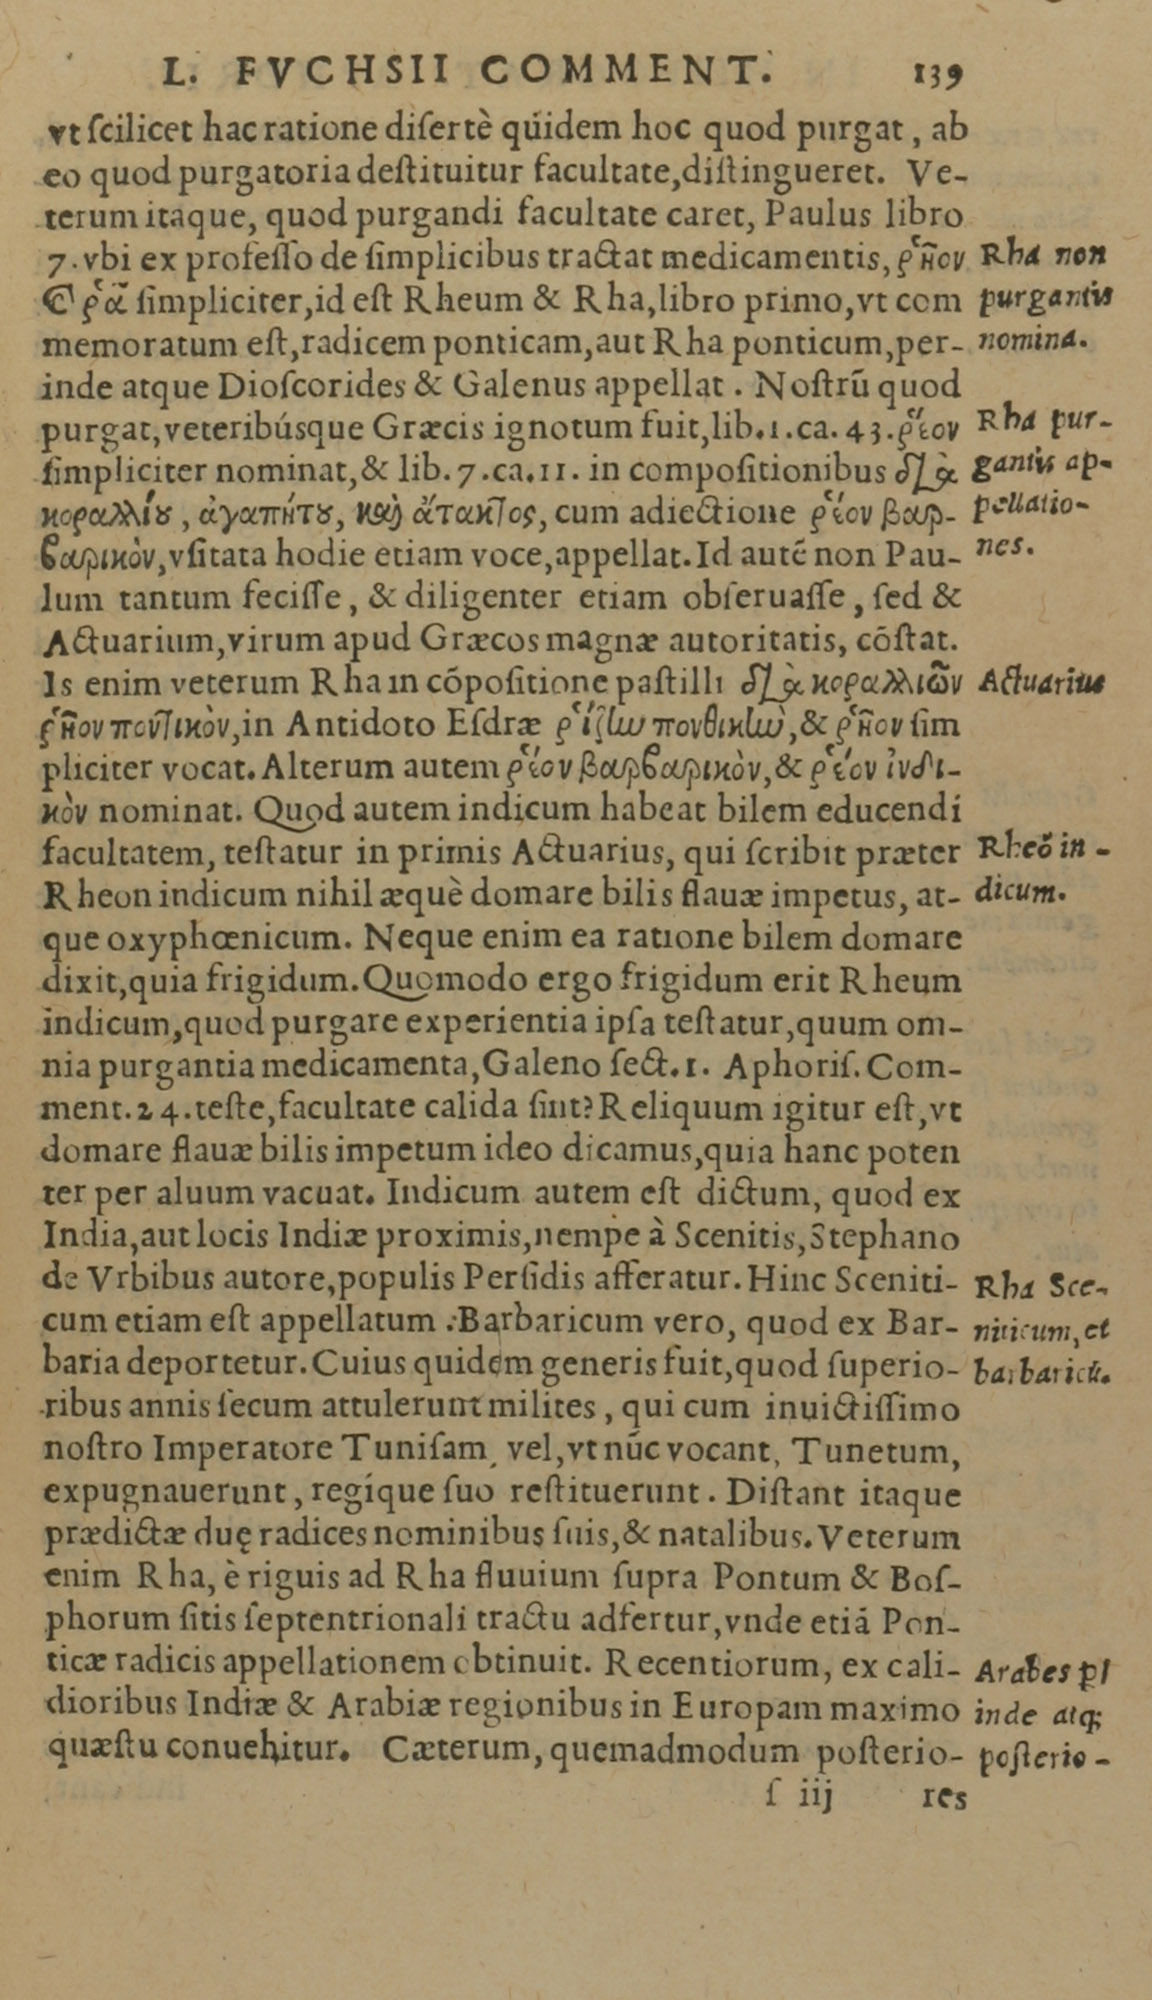 L. FVCHSII COMMENT. 139
vt ſcilicet hac ratione diſertè quidem hoc quod purgat, ab
eo quod purgatoria deſtituitur facultate, diſtingueret. Ve-
terum itaque, quod purgandi facultate caret, Paulus libro
7. vbi ex profeſſo de ſimplicibus tractat medicamentis, ῥῆον
& ῥᾶ ſimpliciter, id eſt Rheum & Rha, libro primo, vt com
memoratum eſt, radicem ponticam, aut Rha ponticum, per-
inde atque Dioſcorides & Galenus appellat. Noſtrū quod
purgat, veteribúsque Græcis ignotum fuit, lib. 1. ca. 43. ῥέον
ſimpliciter nominat, & lib. 7. ca. 11. in compoſitionibus διὰ
κοραλλίου, ἀγαπήτου, καὶ ἄτακτος, cum adiectione ῥέον βαρ-
βαρικὸν, vſitata hodie etiam voce, appellat. Id autē non Pau-
lum tantum feciſſe, & diligenter etiam obſeruaſſe, ſed &
Actuarium, virum apud Græcos magnæ autoritatis, cōſtat.
Is enim veterum Rha in cōpoſitione paſtilli διὰ κοραλλιῶν
ῥῆον ποντικὸν, in Antidoto Eſdræ ῥίζην πονθικὴν, & ῥῆον ſim
pliciter vocat. Alterum autem ῥέον βαρβαρικὸν, & ῥέον ἰνδι-
κὸν nominat. Quod autem indicum habeat bilem educendi
facultatem, teſtatur in primis Actuarius, qui ſcribit præter
Rheon indicum nihil æquè domare bilis flauæ impetus, at-
que oxyphœnicum. Neque enim ea ratione bilem domare
dixit, quia frigidum. Quomodo ergo frigidum erit Rheum
indicum, quod purgare experientia ipſa teſtatur, quum om-
nia purgantia medicamenta, Galeno ſect. 1. Aphoriſ. Com-
ment. 24. teſte, facultate calida ſint? Reliquum igitur eſt, vt
domare flauæ bilis impetum ideo dicamus, quia hanc poten
ter per aluum vacuat. Indicum autem eſt dictum, quod ex
India, aut locis Indiæ proximis, nempe à Scenitis, Stephano
de Vrbibus autore, populis Perſidis afferatur. Hinc Sceniti-
cum etiam eſt appellatum. Barbaricum vero, quod ex Bar-
baria deportetur. Cuius quidem generis fuit, quod ſuperio-
ribus annis ſecum attulerunt milites, qui cum inuictiſſimo
noſtro Imperatore Tuniſam, vel, vt nūc vocant, Tunetum,
expugnauerunt, regíque ſuo reſtituerunt. Diſtant itaque
prædictæ duę radices nominibus ſuis, & natalibus. Veterum
enim Rha, è riguis ad Rha fluuium ſupra Pontum & Boſ-
phorum ſitis ſeptentrionali tractu adfertur, vnde etiā Pon-
ticæ radicis appellationem obtinuit. Recentiorum, ex cali-
dioribus Indiæ & Arabiæ regionibus in Europam maximo
quæſtu conuehitur. Cæterum, quemadmodum poſterio-
ſ iij res
Rha non
purgantis
nomina.
Rha pur-
gantis ap-
pellatio-
nes.
Actuarius
Rheō in-
dicum.
Rha Sce-
niticum, et
barbaricū.
Arabes ꝑ
inde atq;
poſterio-